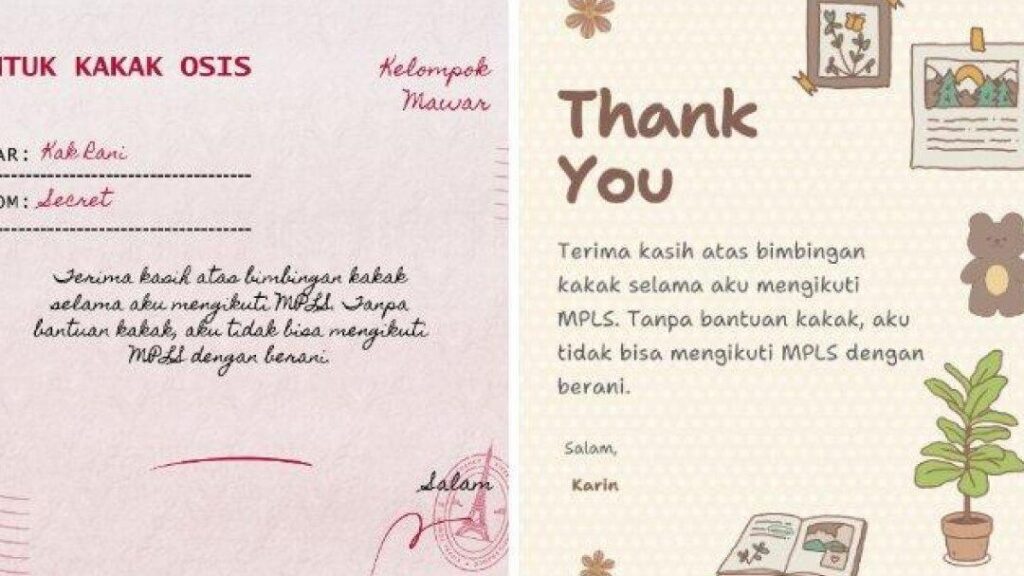 NTUK KAKAK OSIS
Kelompok
Mawar
AR: Kak Rani
OM: Secret
Terima kasih atas bimbingan kakak
selama aku mengikuti MPLS. Tanpa
bantuan kakak, aku tidak bisa mengikuti
MPLS dengan berani.
Salam
Thank
You
Terima kasih atas bimbingan
kakak selama aku mengikuti
MPLS. Tanpa bantuan kakak, aku
tidak bisa mengikuti MPLS dengan
berani.
Salam,
Karin